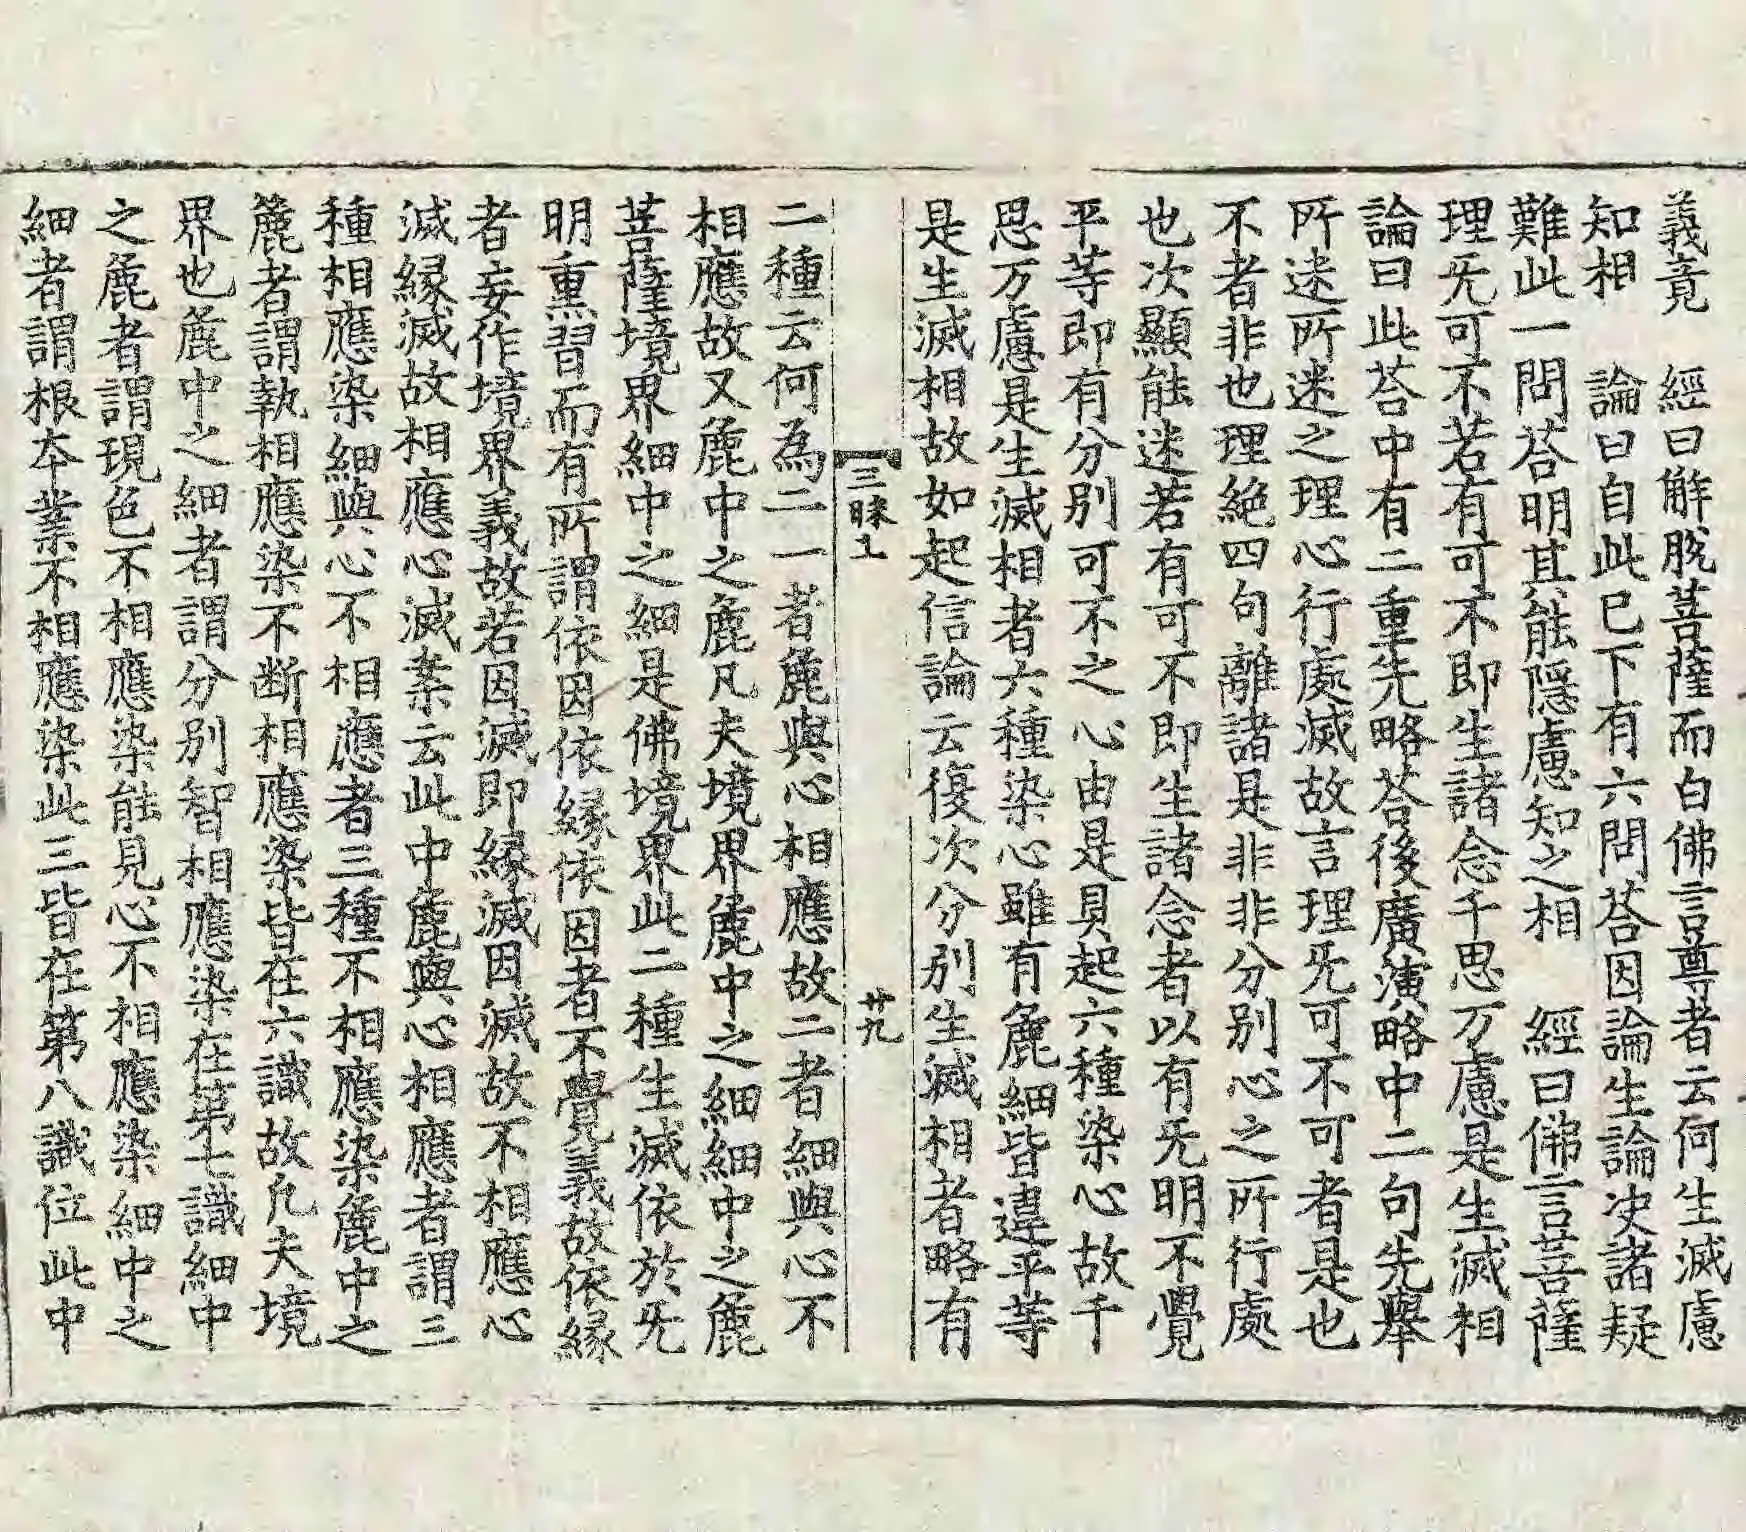 義竟　經曰解脫菩薩而白佛言尊者云何生滅慮
知相　論曰自此已下有六問荅因論生論决諸疑
難此一問荅明其能隱慮知之相　經曰佛言菩薩
理旡可不若有可不即生諸念千思万慮是生滅相
論曰此荅中有二重先略荅後廣演略中二句先舉
所迷所迷之理心行處滅故言理旡可不可者是也
不者非也理絶四句離諸是非非分别心之所行處
也次顯能迷若有可不即生諸念者以有旡明不覺
平等即有分别可不之心由是具起六種染心故千
思万慮是生滅相者六種染心雖有麁細皆違平等
是生滅相故如起信論云復次分别生滅相者略有
三昧上　廿九
二種云何為二一者麁與心相應故二者細與心不
相應故又麁中之麁凡夫境界麁中之細細中之麁
菩薩境界細中之細是佛境界此二種生滅依於旡
明熏習而有所謂依因依縁依因者不覺義故依縁
者妄作境界義故若因滅即縁滅因滅故不相應心
滅縁滅故相應心滅案云此中麁與心相應者謂三
種相應染細與心不相應者三種不相應染麁中之
麁者謂執相應染不断相應染皆在六識故凡夫境
界也麁中之細者謂分别智相應染在第七識細中
之麁者謂現色不相應染能見心不相應染細中之
細者謂根本業不相應染此三皆在第八識位此中